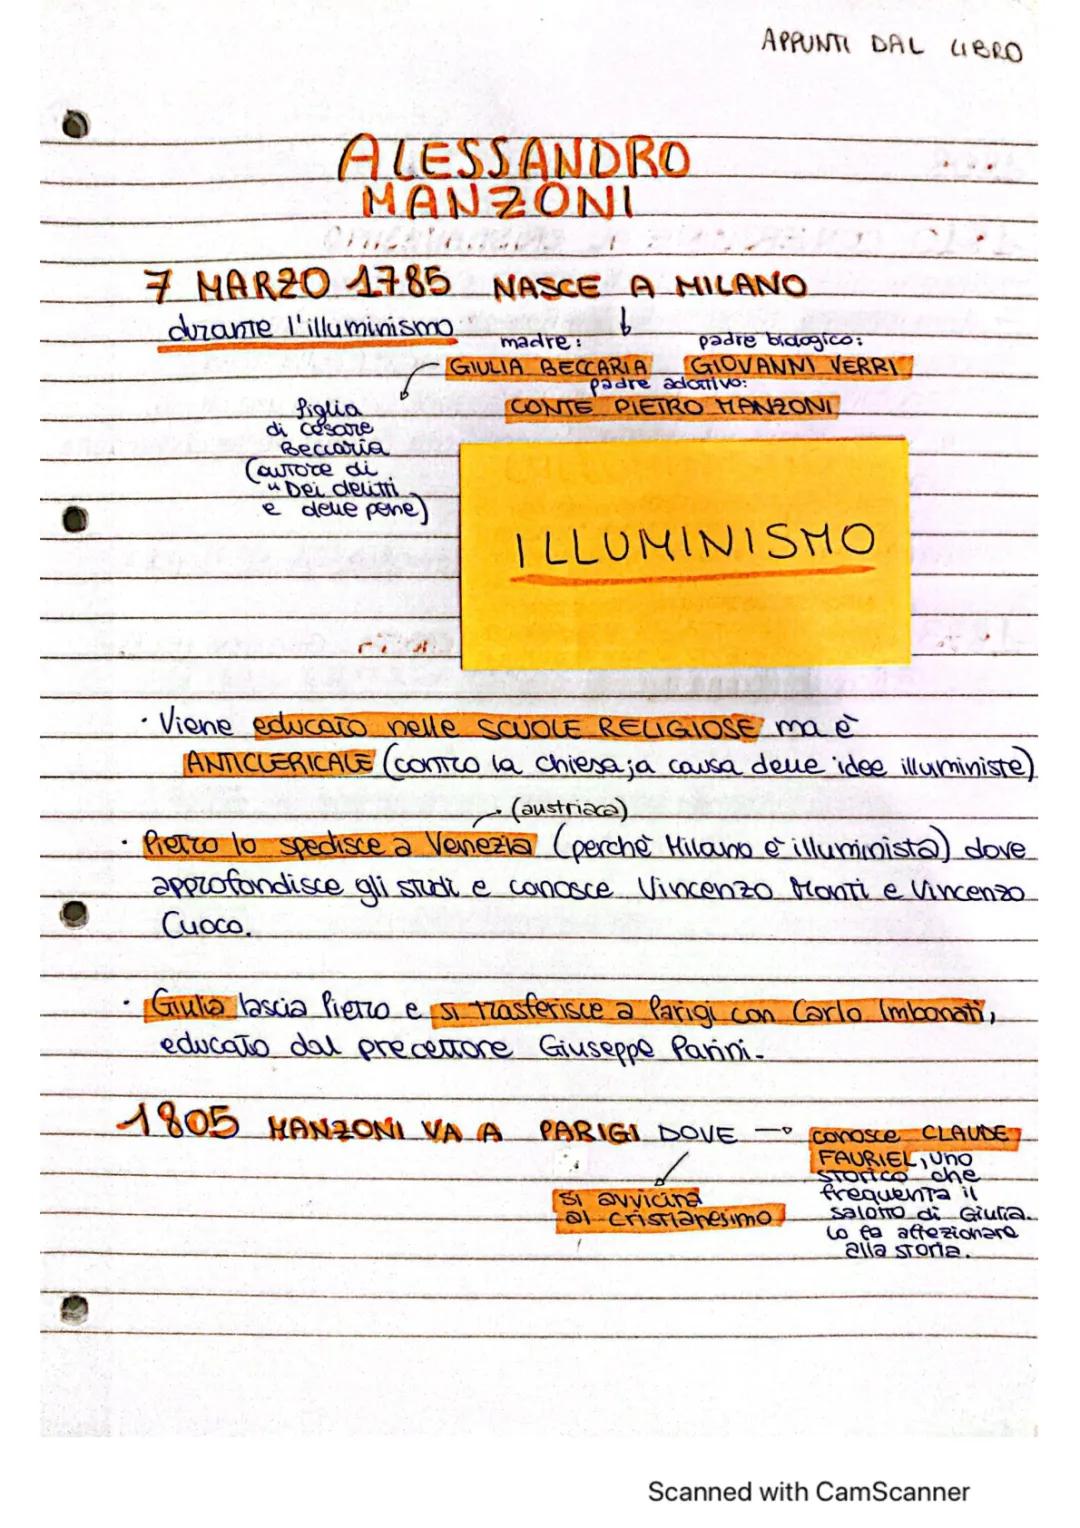 APPUNTI DAL LIBRO
ALESSANDRO
MANZONI
7 MARZO 1785 NASCE A MILANO
durante l'illuminismo
madre:
padre biologico:
GIULIA BECCARIA
GIOVANNI VERRI
padre adottivo:
CONTE PIETRO MANZONI
figlia
di Cesare
Beccaria
(autore di
"Dei delitti
e delle pene)
ILLUMINISMO
· Viene educato nelle SCUOLE RELIGIOSE ma è
ANTICLERICALE (contro la chiesa; a causa delle idee illuministe)
(austriaca)
· Pietro lo spedisce a Venezia (perchè Milano è illuminista) dove
approfondisce gli studi e conosce Vincenzo Monti e Vincenzo
Cuoco.
· Giulia lascia Pietro e si trasferisce a Parigi con Carlo Imbonati,
educato dal precettore Giuseppe Parini.
1805 MANZONI VA A PARIGI DOVE → conosce CLAUDE
FAURIEL, uno
storico che
frequenta il
salotto di Giulia.
Lo fa affezionare
alla storia.
si avvicina
al cristianesimo
Scanned with CamScanner